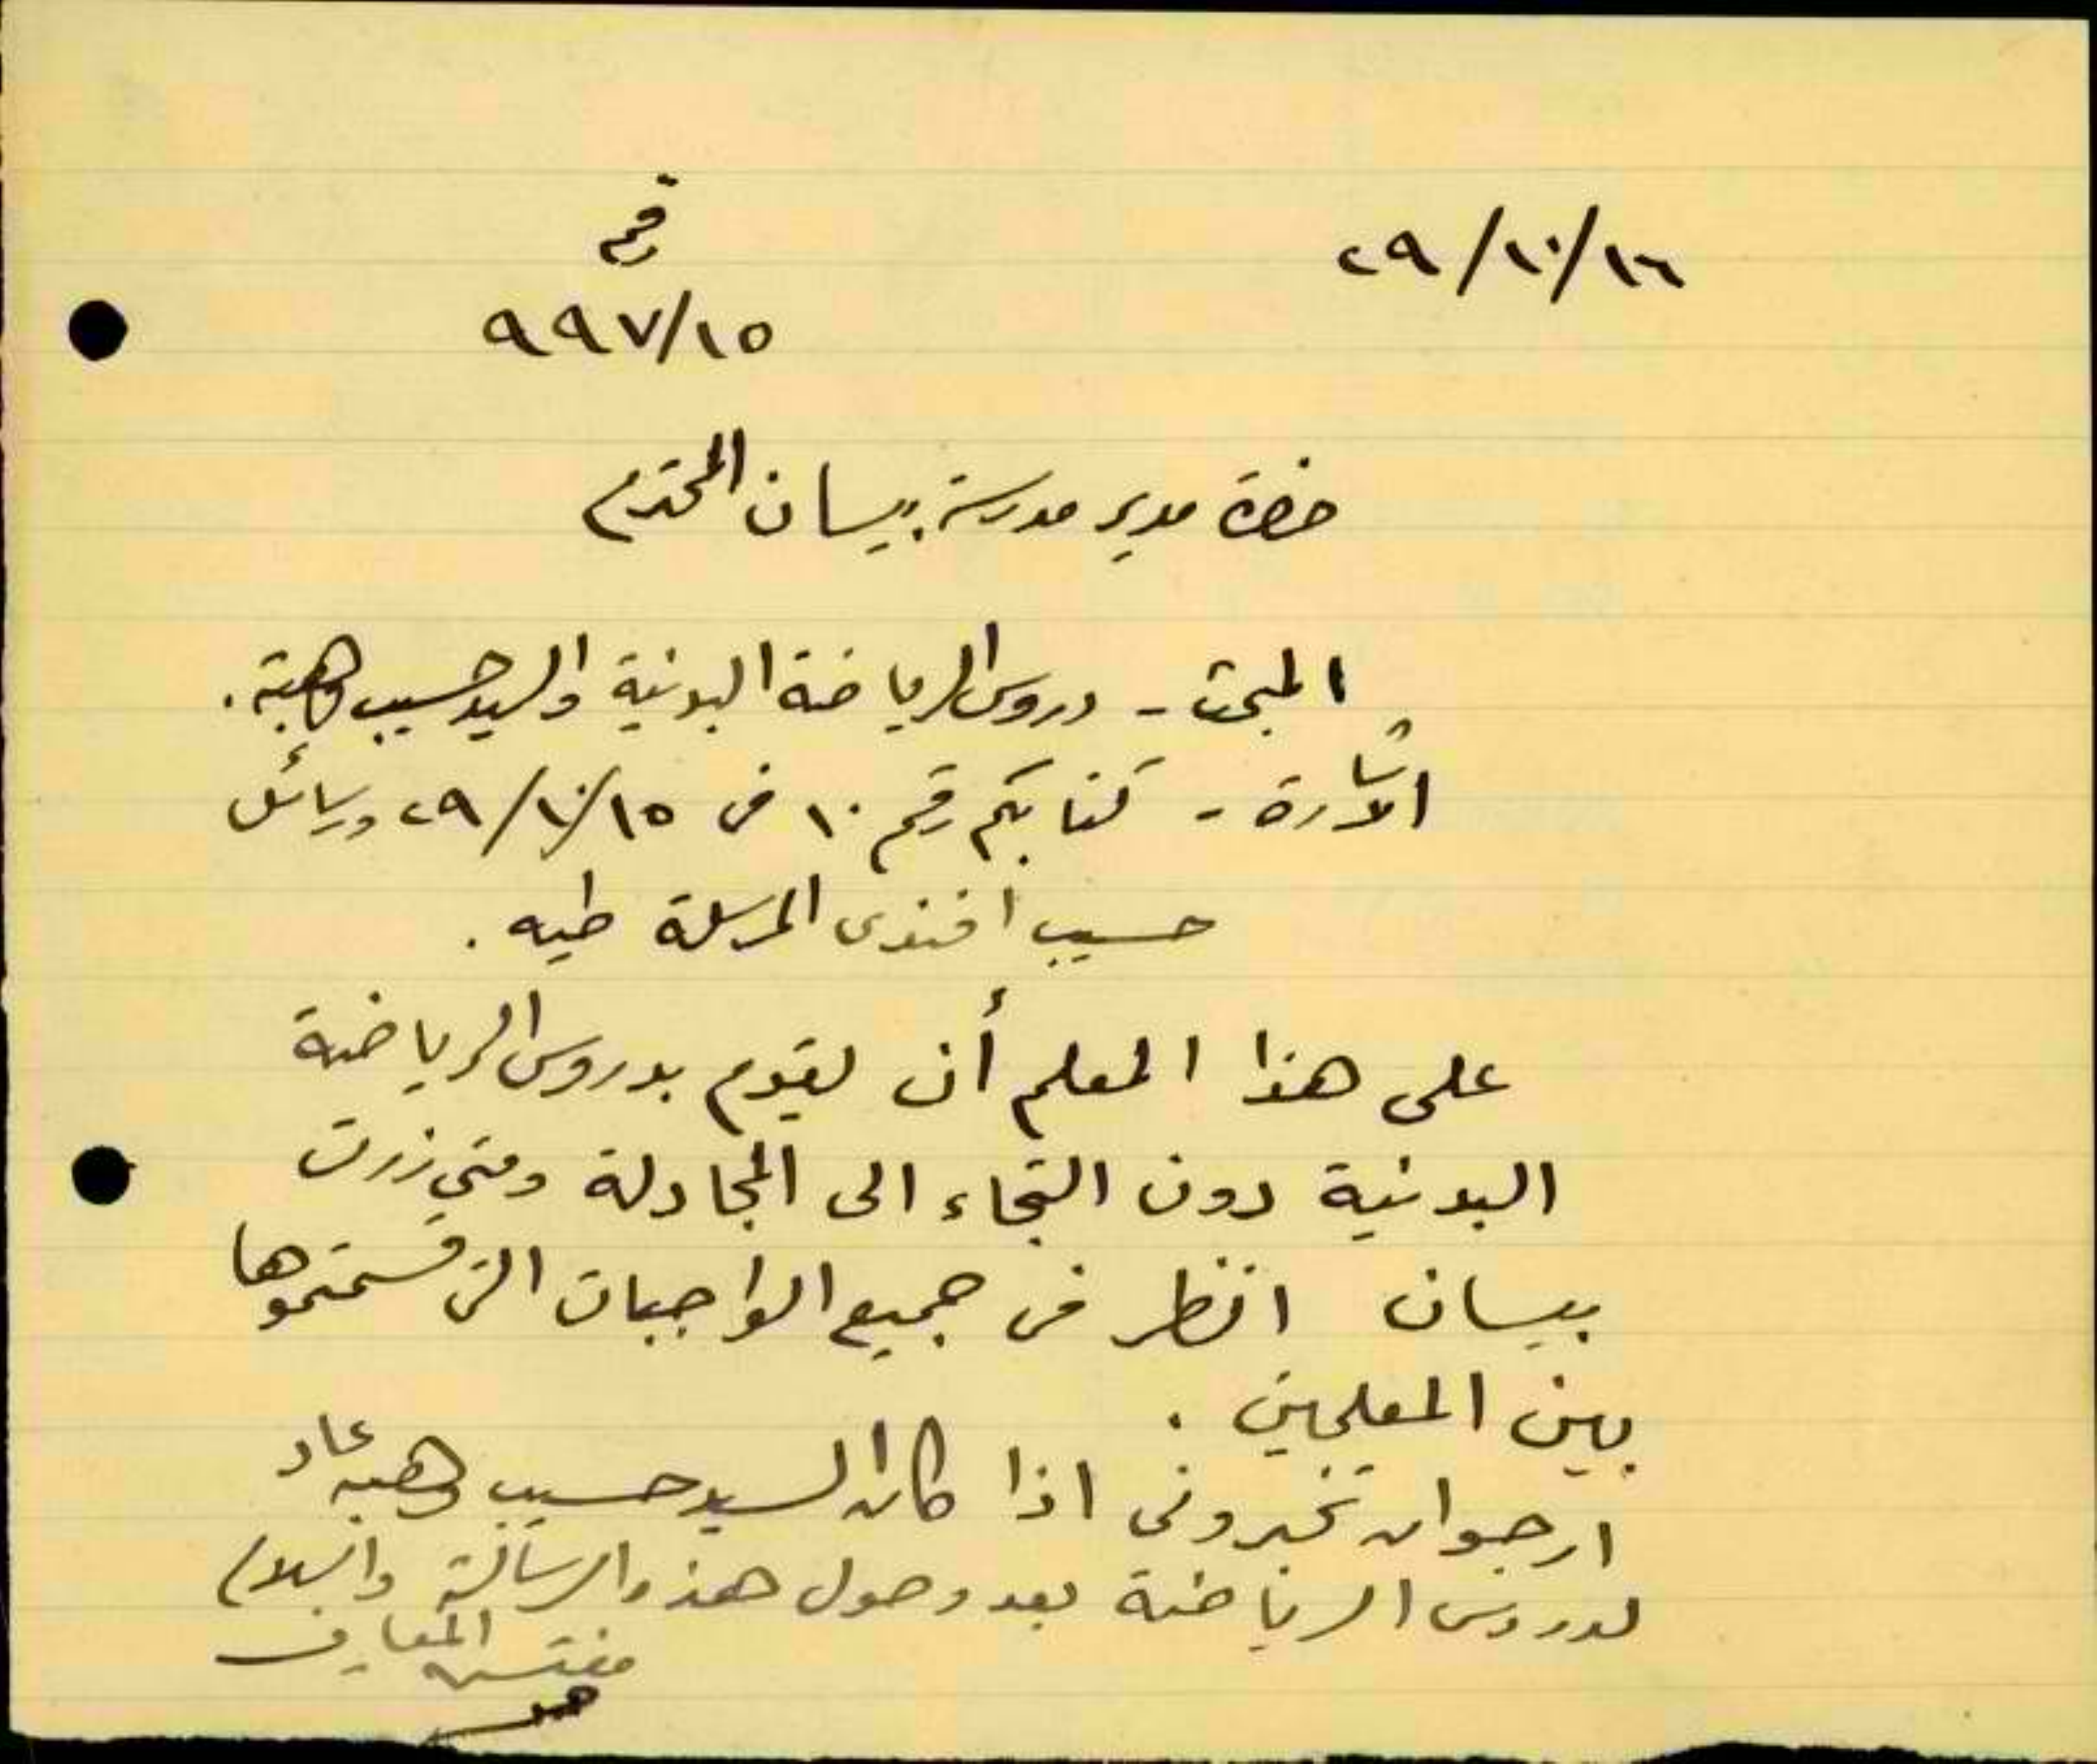 ١٦/١٠/٢٩
رقم
٩٩٧/١٥
حضرة مدير مدرسة بيسان المحترم
المبحث - دروس الرياضة البدنية والسيد حسيب وهبة.
الاشارة - كتابكم رقم ١٠ في ١٥/١٠/٢٩ ورسائل
حسيب افندي المرسلة طيه.
على هذا المعلم أن يقوم بدروس الرياضة
البدنية دون التجاء الى المجادلة ومتى زرت
بيسان انظر في جميع الواجبات التي قسمتموها
بين المعلمين.
ارجو ان تخبروني اذا كان السيد حسيب وهبه عاد
لدروس الرياضة بعد وصول هذه الرسالة والسلام
مفتش المعارف